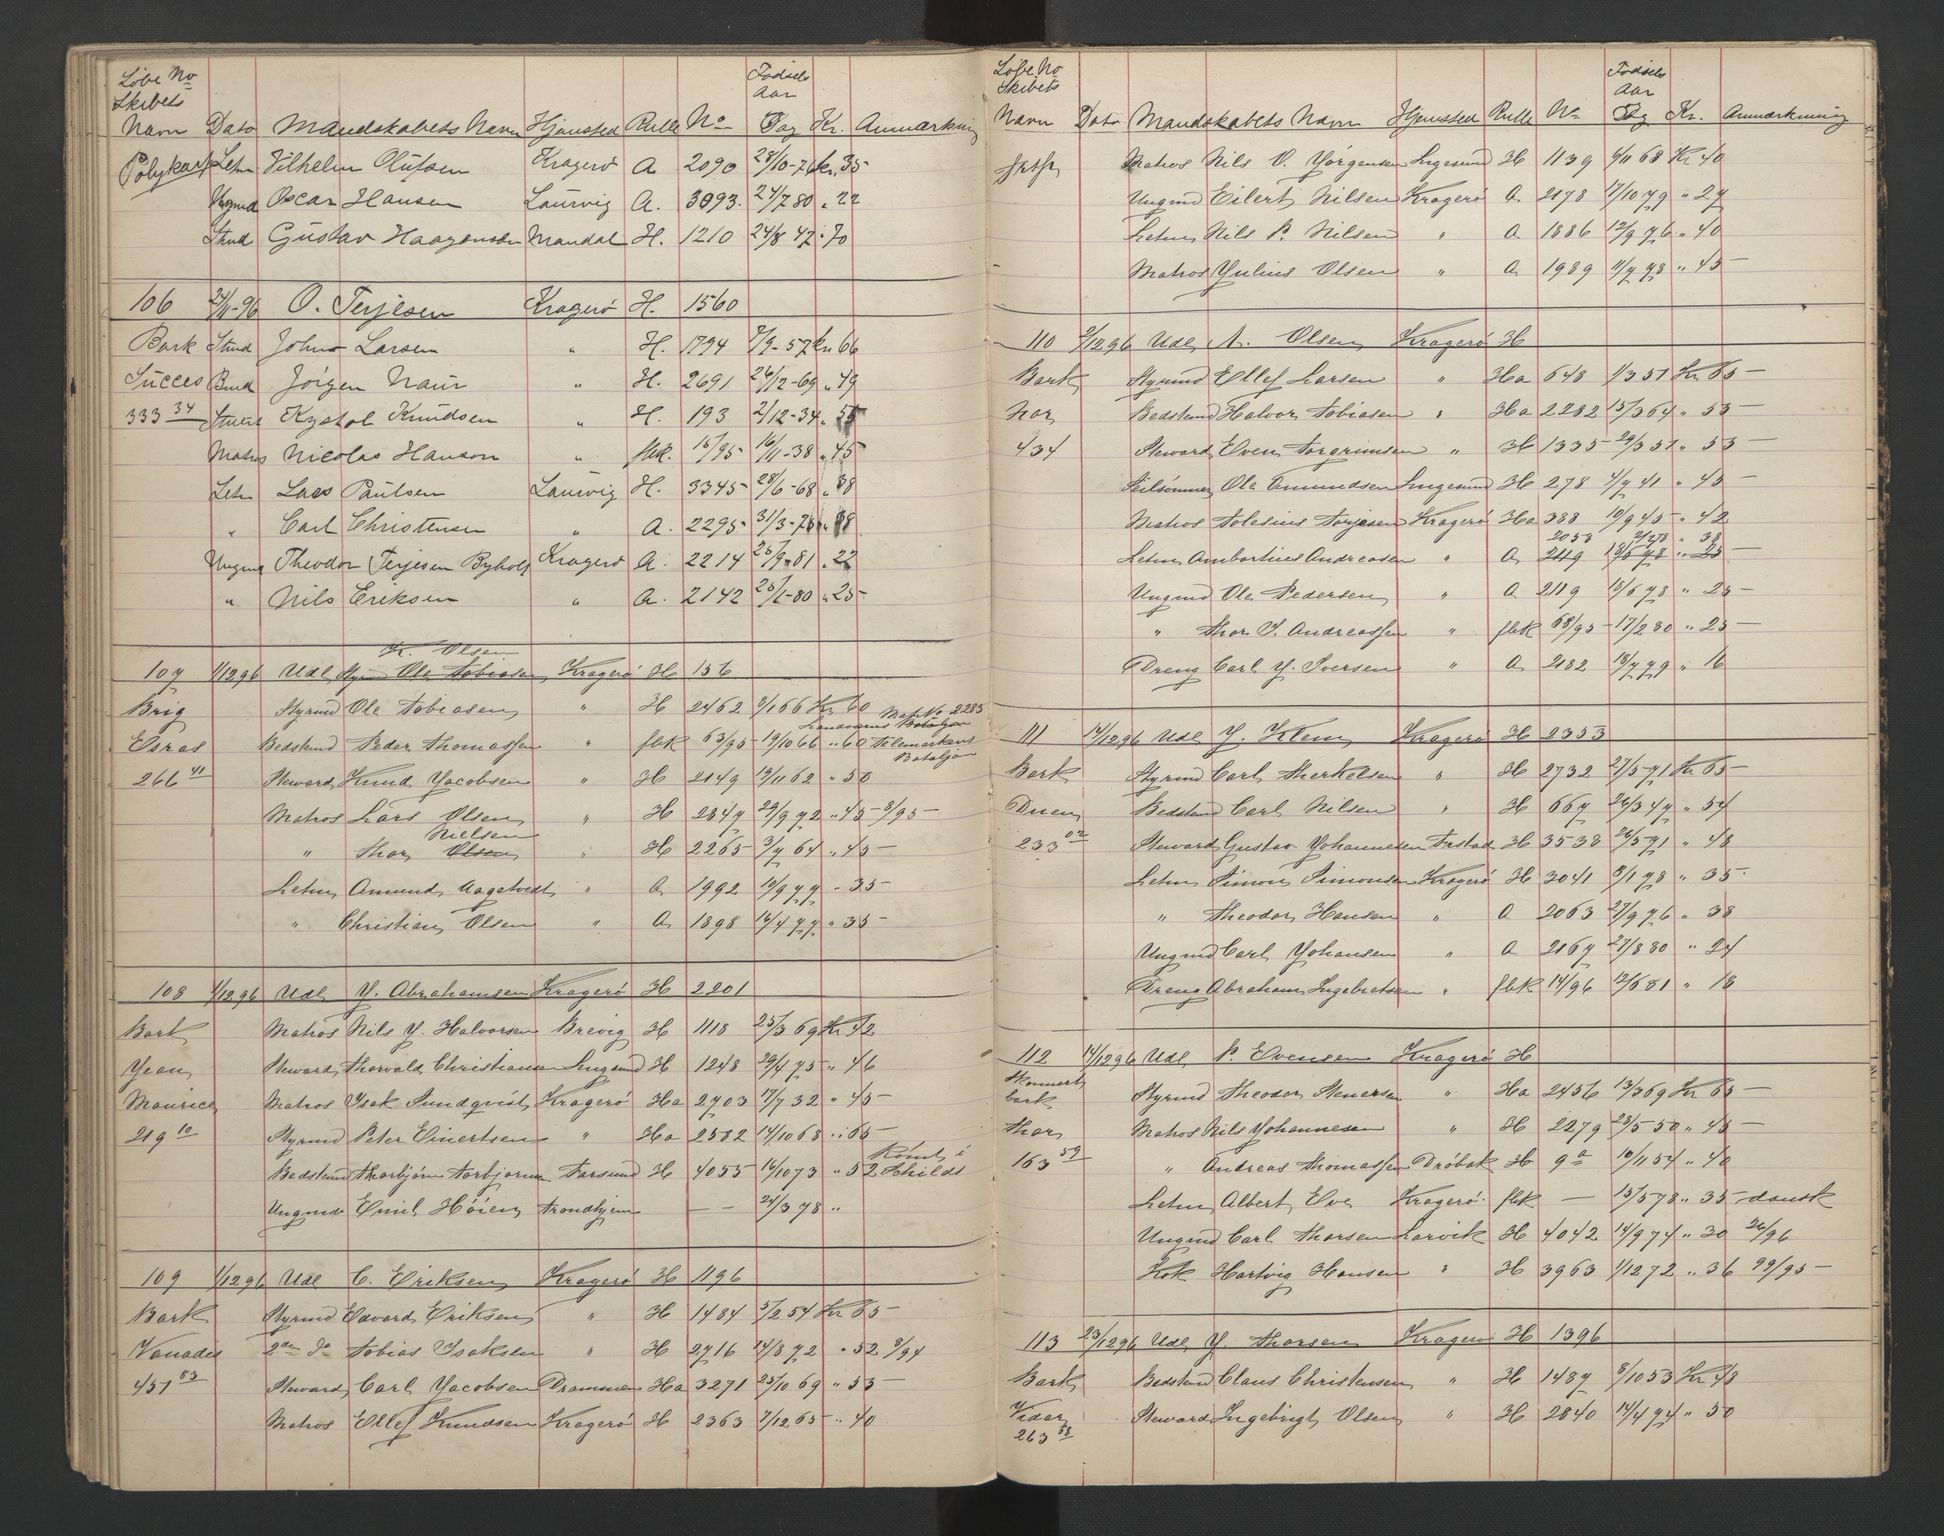 Løbe No
Skibets
Navn Dato Mandskabets Navn Hjemsted Rulle No Fødsels Aar Dag Kr. Anmærkning
Polykarp Letm Vilhelm Olufsen Kragerø A 2090 28/10-76 kr. 35
Ungmd Oscar Hansen Laurvig A. 3093. 24/7 80 " 22
Stmd Gustav Haagensen Mandal H. 1210 24/8 47 " 70
106 24/11-96 O. Terjesen Kragerø H. 1560
Bark Stmd John Larsen " H. 1794 7/9-57 kr 66
Succes Bmd Jørgen Naur " H. 2691 26/12-69 " 49
333 34 Stuert Kystol Knudsen " H. 193 2/12-34 " 55
Matros Nicolas Hanson " flk. 15/95 16/11-38 " 45
Letm Lars Paulsen Laurvig H. 3345 28/6-68 " 38
" Carl Christensen " A. 2295 31/3-76 " 38
Ungmd Theodor Terjesen Byholt Kragerø A. 2214 25/9-81 " 22
" Nils Eriksen " A. 2142 25/1-80 " 25
K. Olsen
107 1/12 96 Udl Styrm Ole Tobiasen Kragerø H 156
Brig Styrmd Ole Tobiasen " H 2462 2/1 66 Kr 60 Mat No 2283
Esras Bedstmd Peder Thomassen " flk 63/95 19/10 66 " 60 Landværns Bataljon Telemarkens Bataljon
266 41 Steward Knud Jacobsen " H 2149 19/11 62 " 50
Matros Lars Olsen " H 2847 29/9 72 " 45 - 8/95 -
Nielsen
" Thor Olsen " H 2265 3/7 64 " 45 -
Letm Amund Aagetvedt " A 1992 19/9 77 " 35 -
" Christian Olsen " A 1898 14/4 77 " 35 -
108 1/12 96 Udl J. Abrahamsen Kragerø H 2201
Bark Matros Nils J. Halvorsen Brevig H 1118 25/3 69 Kr 42
Jean Steward Thorvald Christiansen Lngsund H 1248 29/4 75 " 46
Maurice Matros Isak Sundqvist Kragerø Ha 2703 17/7 32 " 45 -
219 10 Styrmd Peter Einertsen " Ha 2582 14/10 68 " 65 -
Bedstmd Thorbjørn Torbjørnsen Farsund H 4055 16/10 73 " 52 Rømt i Schilds
Ungmd Emil Høien Trondhjem - - 24/3 78 "
109 1/12 96 Udl C. Eriksen Kragerø H 1196
Bark Styrmd Edvard Eriksen " H 1484 5/2 54 Kr 65 -
Vanadis 2den Do Tobias Isaksen " H 2716 14/8 72 " 52 8/94
457 83 Steward Carl Jacobsen Drammen Ha 3271 25/10 69 " 55 -
Matros Ellef Knudsen Kragerø H 2363 7/12 65 " 40
Løbe No
Skibets
Navn Dato Mandskabets Navn Hjemsted Rulle No Fødsels Aar Dag Kr. Anmærkning
Matros Nils O. Jørgensen Lngesund H 1139 4/11 68 Kr 40
Ungmd Eilert Nilsen Kragerø A. 2178 17/10 79 " 27
Letm Nils P. Nilsen " A 1886 12/9 76 " 40
Matros Julius Olsen " A 1989 11/7 78 " 45 -
110 9/12 96 Udl A. Olsen Kragerø H
Bark Styrmd Ellef Larsen " Ha 648 1/3 51 Kr 65 -
Nor Bedstmd Halvor Tobiasen " Ha 2282 15/3 64 " 55 -
434 Steward Even Torgrimsen " H 1335 29/3 51 " 53 -
Seilsømmer Ole Amundsen Lngesund H 278 4/7 41 " 45 -
Matros Tolesius Torjesen Kragerø Ha 388 10/9 45 " 42
2058 2/2 78 " 38
Letm Ambortius Andreasen " A 2119 18/6 78 " 25 -
Ungmd Ole Pedersen " A 2119 18/6 78 " 25 -
" Thor I. Andreassen " flk 68/95 - 17/2 80 " 25 -
Dreng Carl J. Iversen " A 2182 18/7 79 " 16
111 14/12 96 Udl J. Klem Kragerø H 2353
Bark Styrmd Carl Therkelsen " H 2732 27/5 71 Kr 65 -
Duen Bedstmd Carl Nilsen " H 667 26/3 47 " 54
233 02 Steward Gustav Johannesen Farstad H 3538 26/5 71 " 48
Letm Simon Simonsen Kragerø H 3041 8/1 78 " 35 -
" Theodor Hansen " A 2063 27/9 76 " 38
Ungmd Carl Johansen " A 2167 27/8 80 " 24
Dreng Abraham Ingebretsen " flk 14/96 12/6 81 " 18
112 14/12 96 Udl P. Evensen Kragerø H
Skonnert bark Styrmd Theodor Stenersen " Ha 2456 13/3 69 Kr 65 -
Thor Matros Nils Johannesen " H 2279 23/5 50 " 45 -
163 59 " Andreas Thomassen Drøbak H 9a 10/11 54 " 40
Letm Albert Eve Kragerø flk - 15/5 78 " 35 - dansk
Ungmd Carl Thorsen Larvik H 4042 14/9 74 " 30 26/96
Kok Hartvig Hansen " H 3963 1/12 72 " 36 99/95 -
113 23/12 96 Udl J. Thorsen Kragerø H 1396
Bark Bedstmd Claus Christensen " H 1487 8/10 53 Kr 48
Vidar Steward Ingebrigt Olsen " H 2840 14/4 74 " 50
263 88